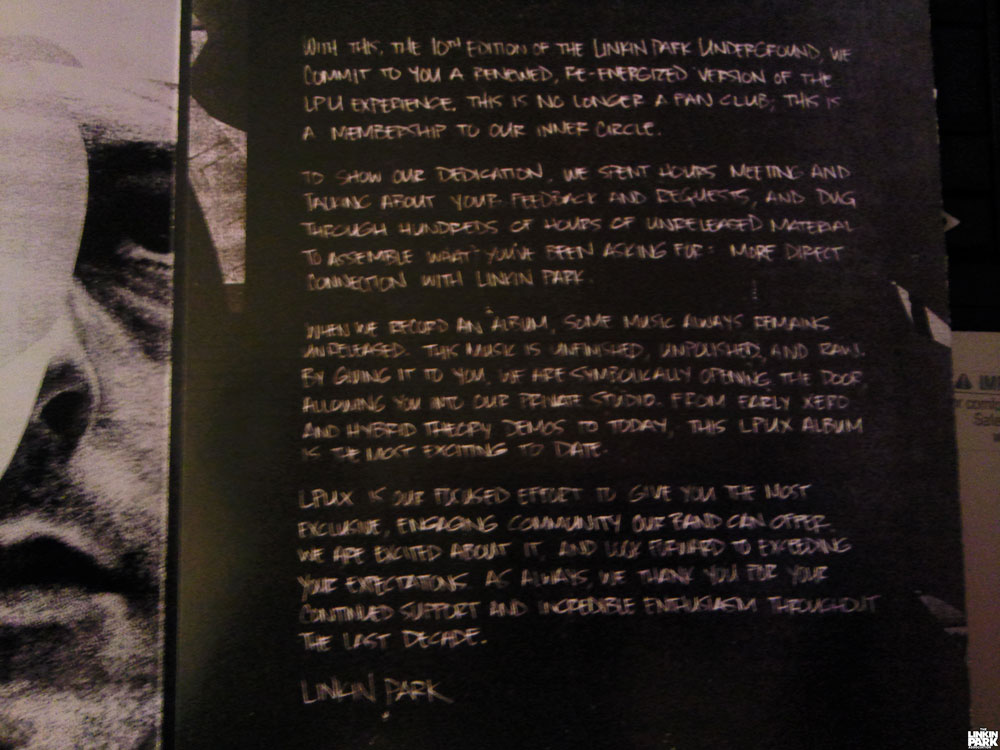 WITH THIS, THE 10TH EDITION OF THE LINKIN PARK UNDERGROUND, WE
COMMIT TO YOU A RENEWED, RE-ENERGIZED VERSION OF THE
LPU EXPERIENCE. THIS IS NO LONGER A FAN CLUB; THIS IS
A MEMBERSHIP TO OUR INNER CIRCLE.
TO SHOW OUR DEDICATION, WE SPENT HOURS MEETING AND
TALKING ABOUT YOUR FEEDBACK AND REQUESTS, AND DUG
THROUGH HUNDREDS OF HOURS OF UNRELEASED MATERIAL
TO ASSEMBLE WHAT YOU'VE BEEN ASKING FOR: MORE DIRECT
CONNECTION WITH LINKIN PARK.
WHEN WE RECORD AN ALBUM, SOME MUSIC ALWAYS REMAINS
UNRELEASED. THIS MUSIC IS UNFINISHED, UNPOLISHED, AND RAW.
BY GIVING IT TO YOU, WE ARE SYMBOLICALLY OPENING THE DOOR,
ALLOWING YOU INTO OUR PRIVATE STUDIO. FROM EARLY XERO
AND HYBRID THEORY DEMOS TO TODAY, THIS LPUX ALBUM
IS THE MOST EXCITING TO DATE.
LPUX IS OUR FOCUSED EFFORT TO GIVE YOU THE MOST
EXCLUSIVE, ENGAGING COMMUNITY OUR BAND CAN OFFER.
WE ARE EXCITED ABOUT IT, AND LOOK FORWARD TO EXCEEDING
YOUR EXPECTATIONS. AS ALWAYS, WE THANK YOU FOR YOUR
CONTINUED SUPPORT AND INCREDIBLE ENTHUSIASM THROUGHOUT
THE LAST DECADE.
LINKIN PARK
LINKIN
PARK